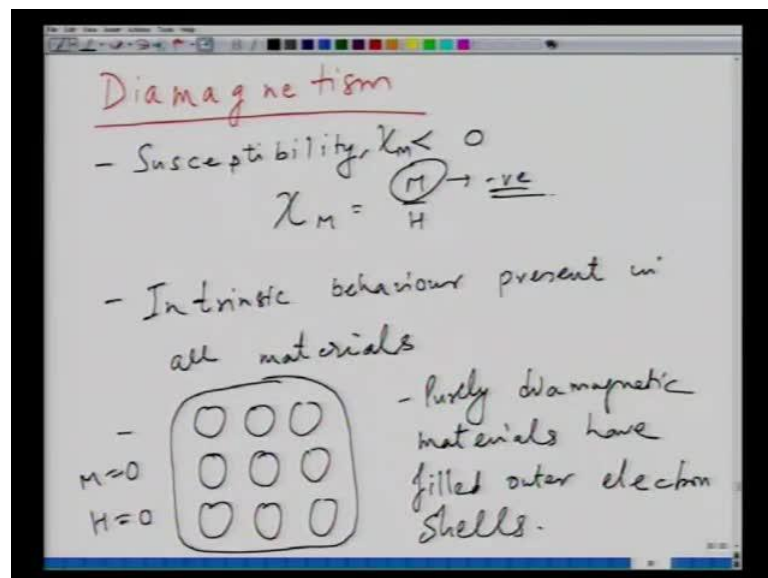 Diamagnetism
- Susceptibility, χM < 0
χM = M/H → -ve
- Intrinsic behaviour present in
all materials
-
M=0
H=0
- Purely diamagnetic
materials have
filled outer electron
shells.